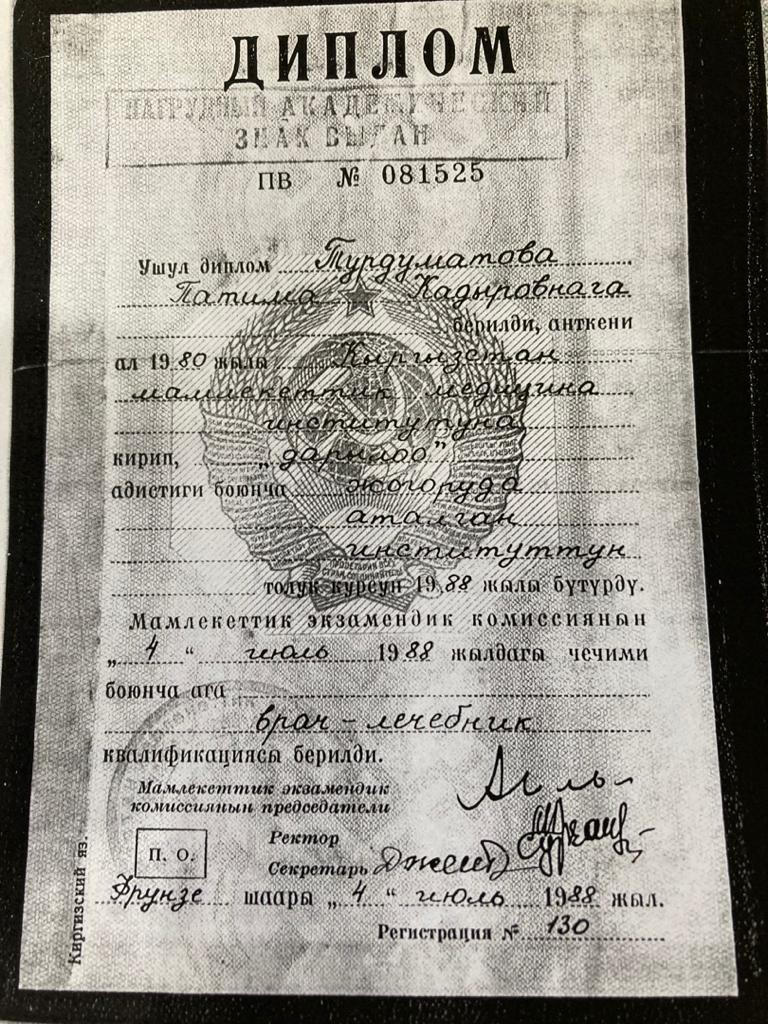 ДИПЛОМ
НАГРУДНЫЙ АКАДЕМИЧЕСКИЙ
ЗНАК ВЫДАН
ПВ № 081525
Ушул диплом Турдуматова
Патима Кадыровнага
берилди, анткени
ал 1980 жылы Кыргызстан
мамлекеттик медицина
институтуна
кирип, „дарылоо"
адистиги боюнча жогоруда
аталган
институттун
толук курсун 1988 жылы бүтүрдү.
Мамлекеттик экзамендик комиссиянын
„4" июль 1988 жылдагы чечими
боюнча ага
врач-лечебник
квалификациясы берилди.
Мамлекеттик экзамендик
комиссиянын председатели
Ректор
П. О.
Секретарь
Фрунзе шаары „4" июль 1988 жыл.
Регистрация № 130
Киргизский яз.